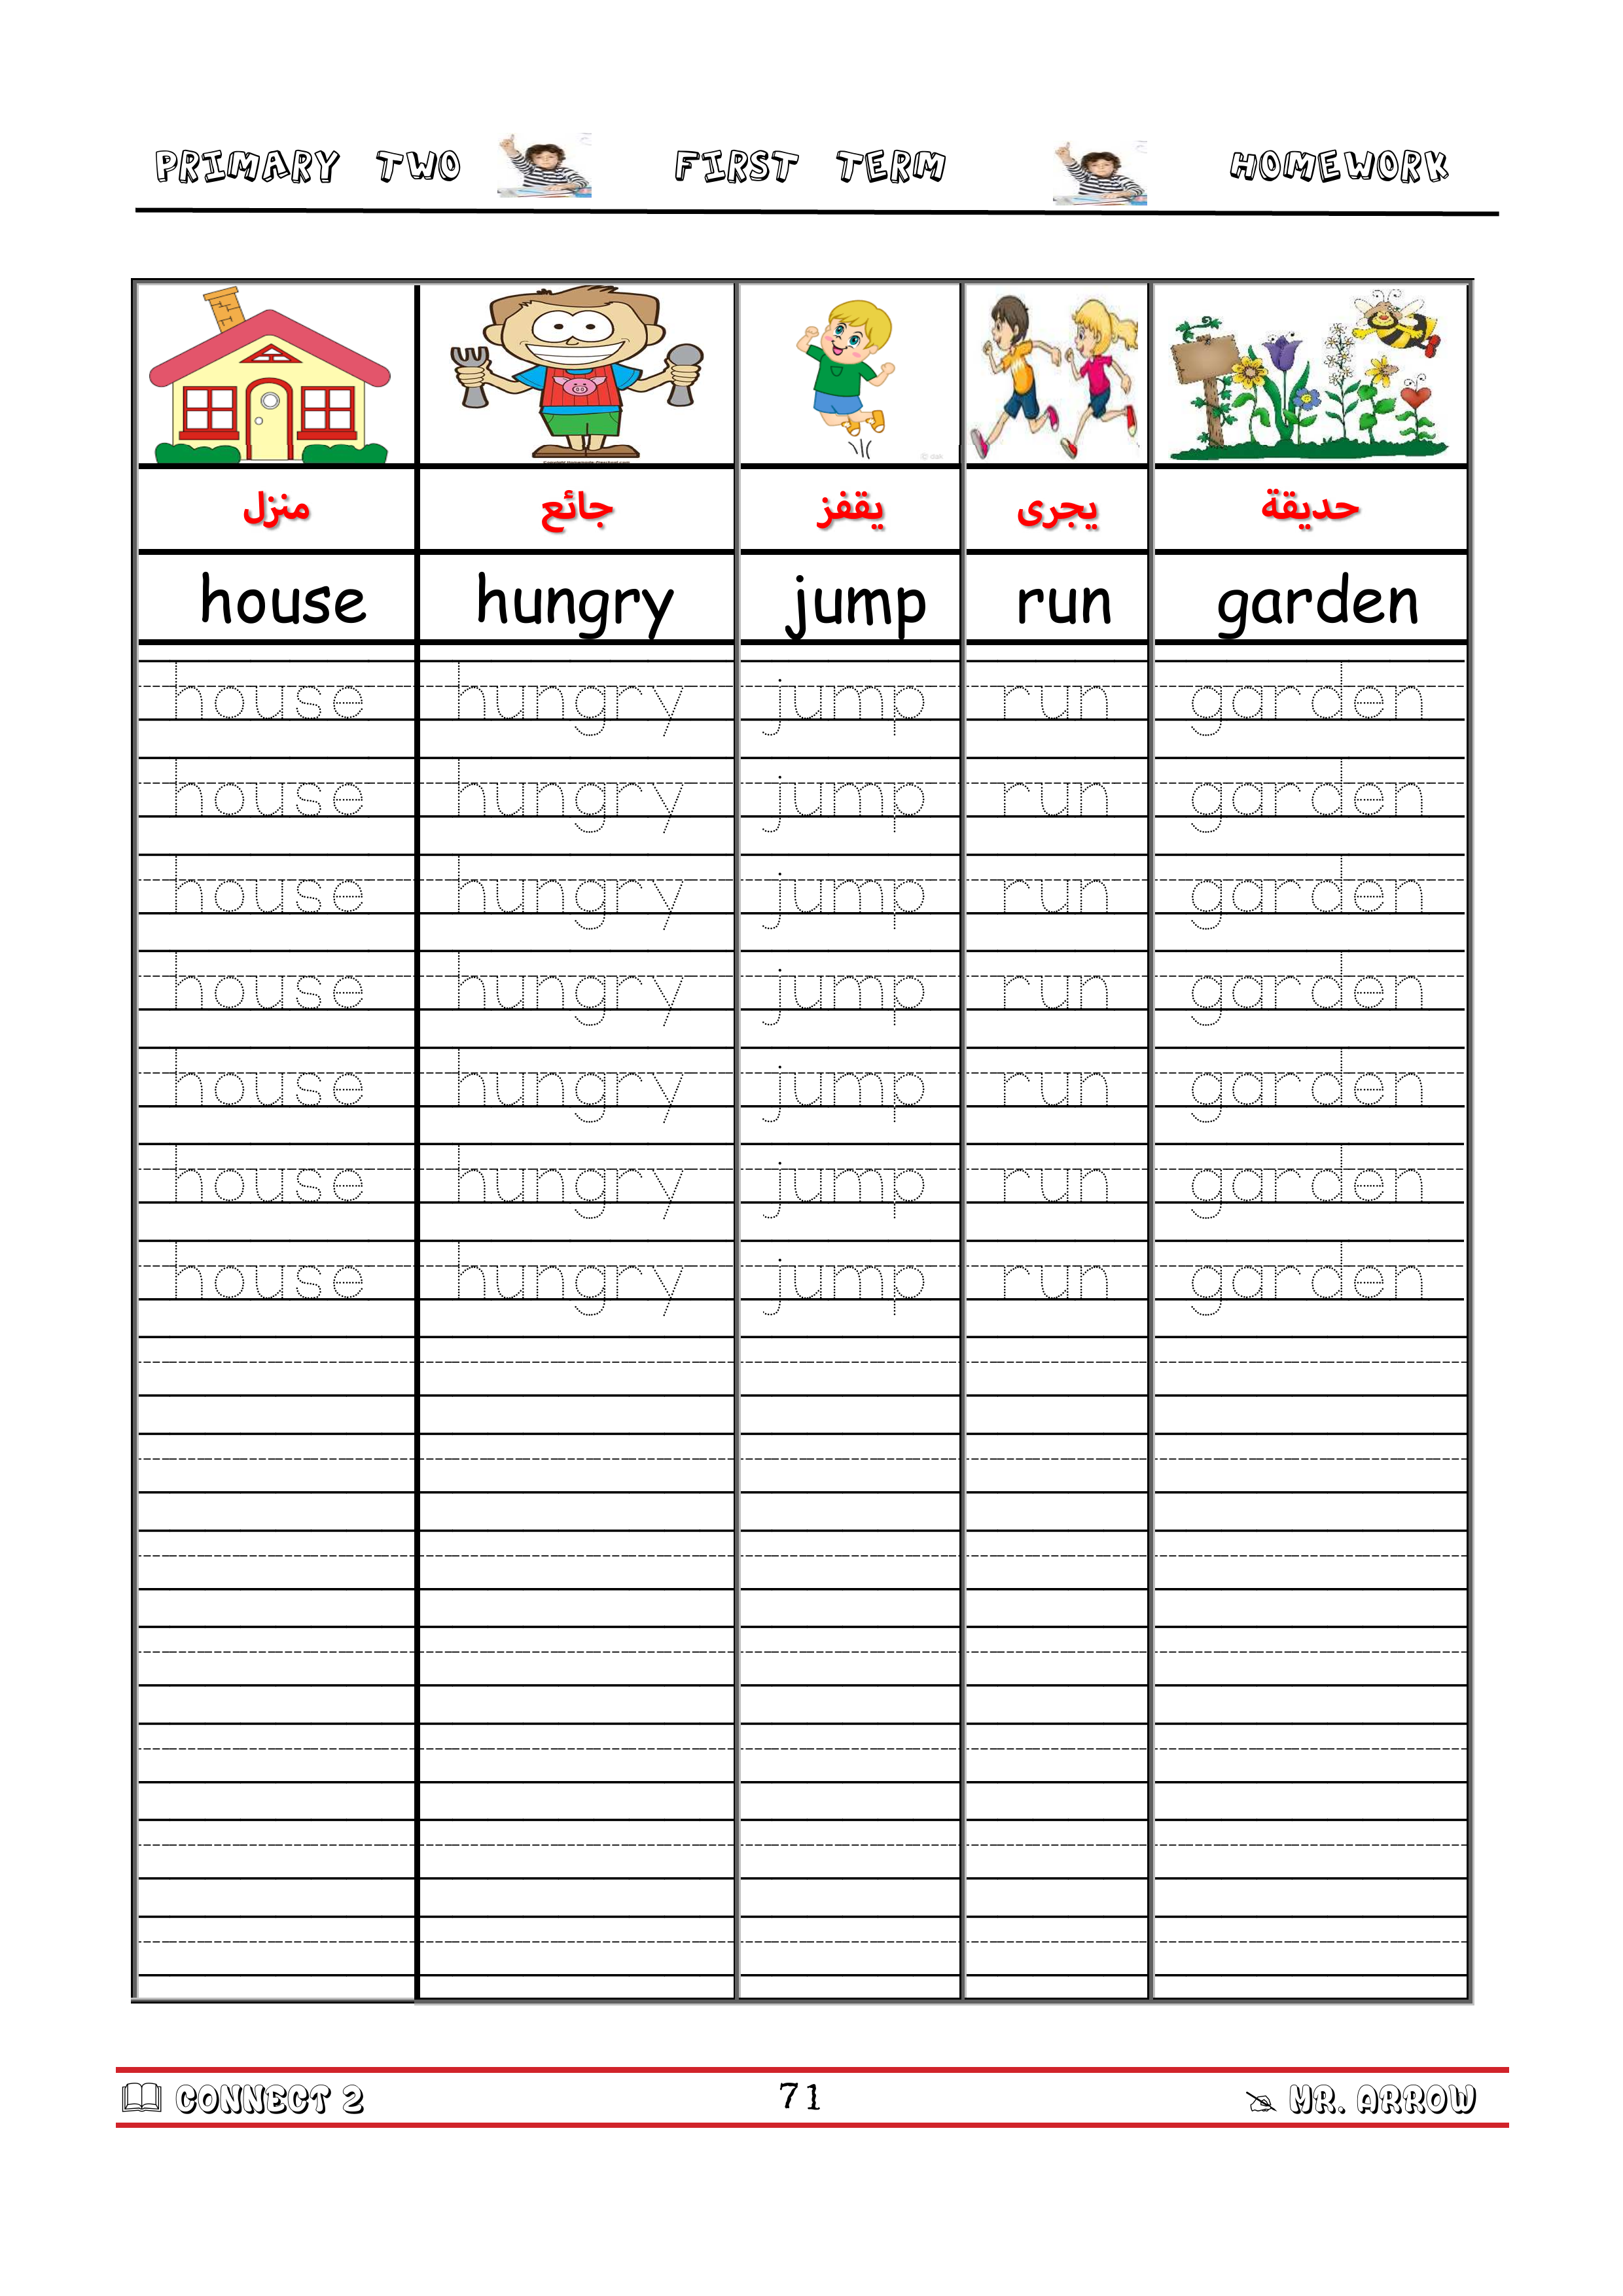 PRIMARY TWO FIRST TERM HOMEWORK
منزل جائع يقفز يجرى حديقة
house hungry jump run garden
house hungry jump run garden
house hungry jump run garden
house hungry jump run garden
house hungry jump run garden
house hungry jump run garden
house hungry jump run garden
house hungry jump run garden
CONNECT 2 71 MR. ARROW